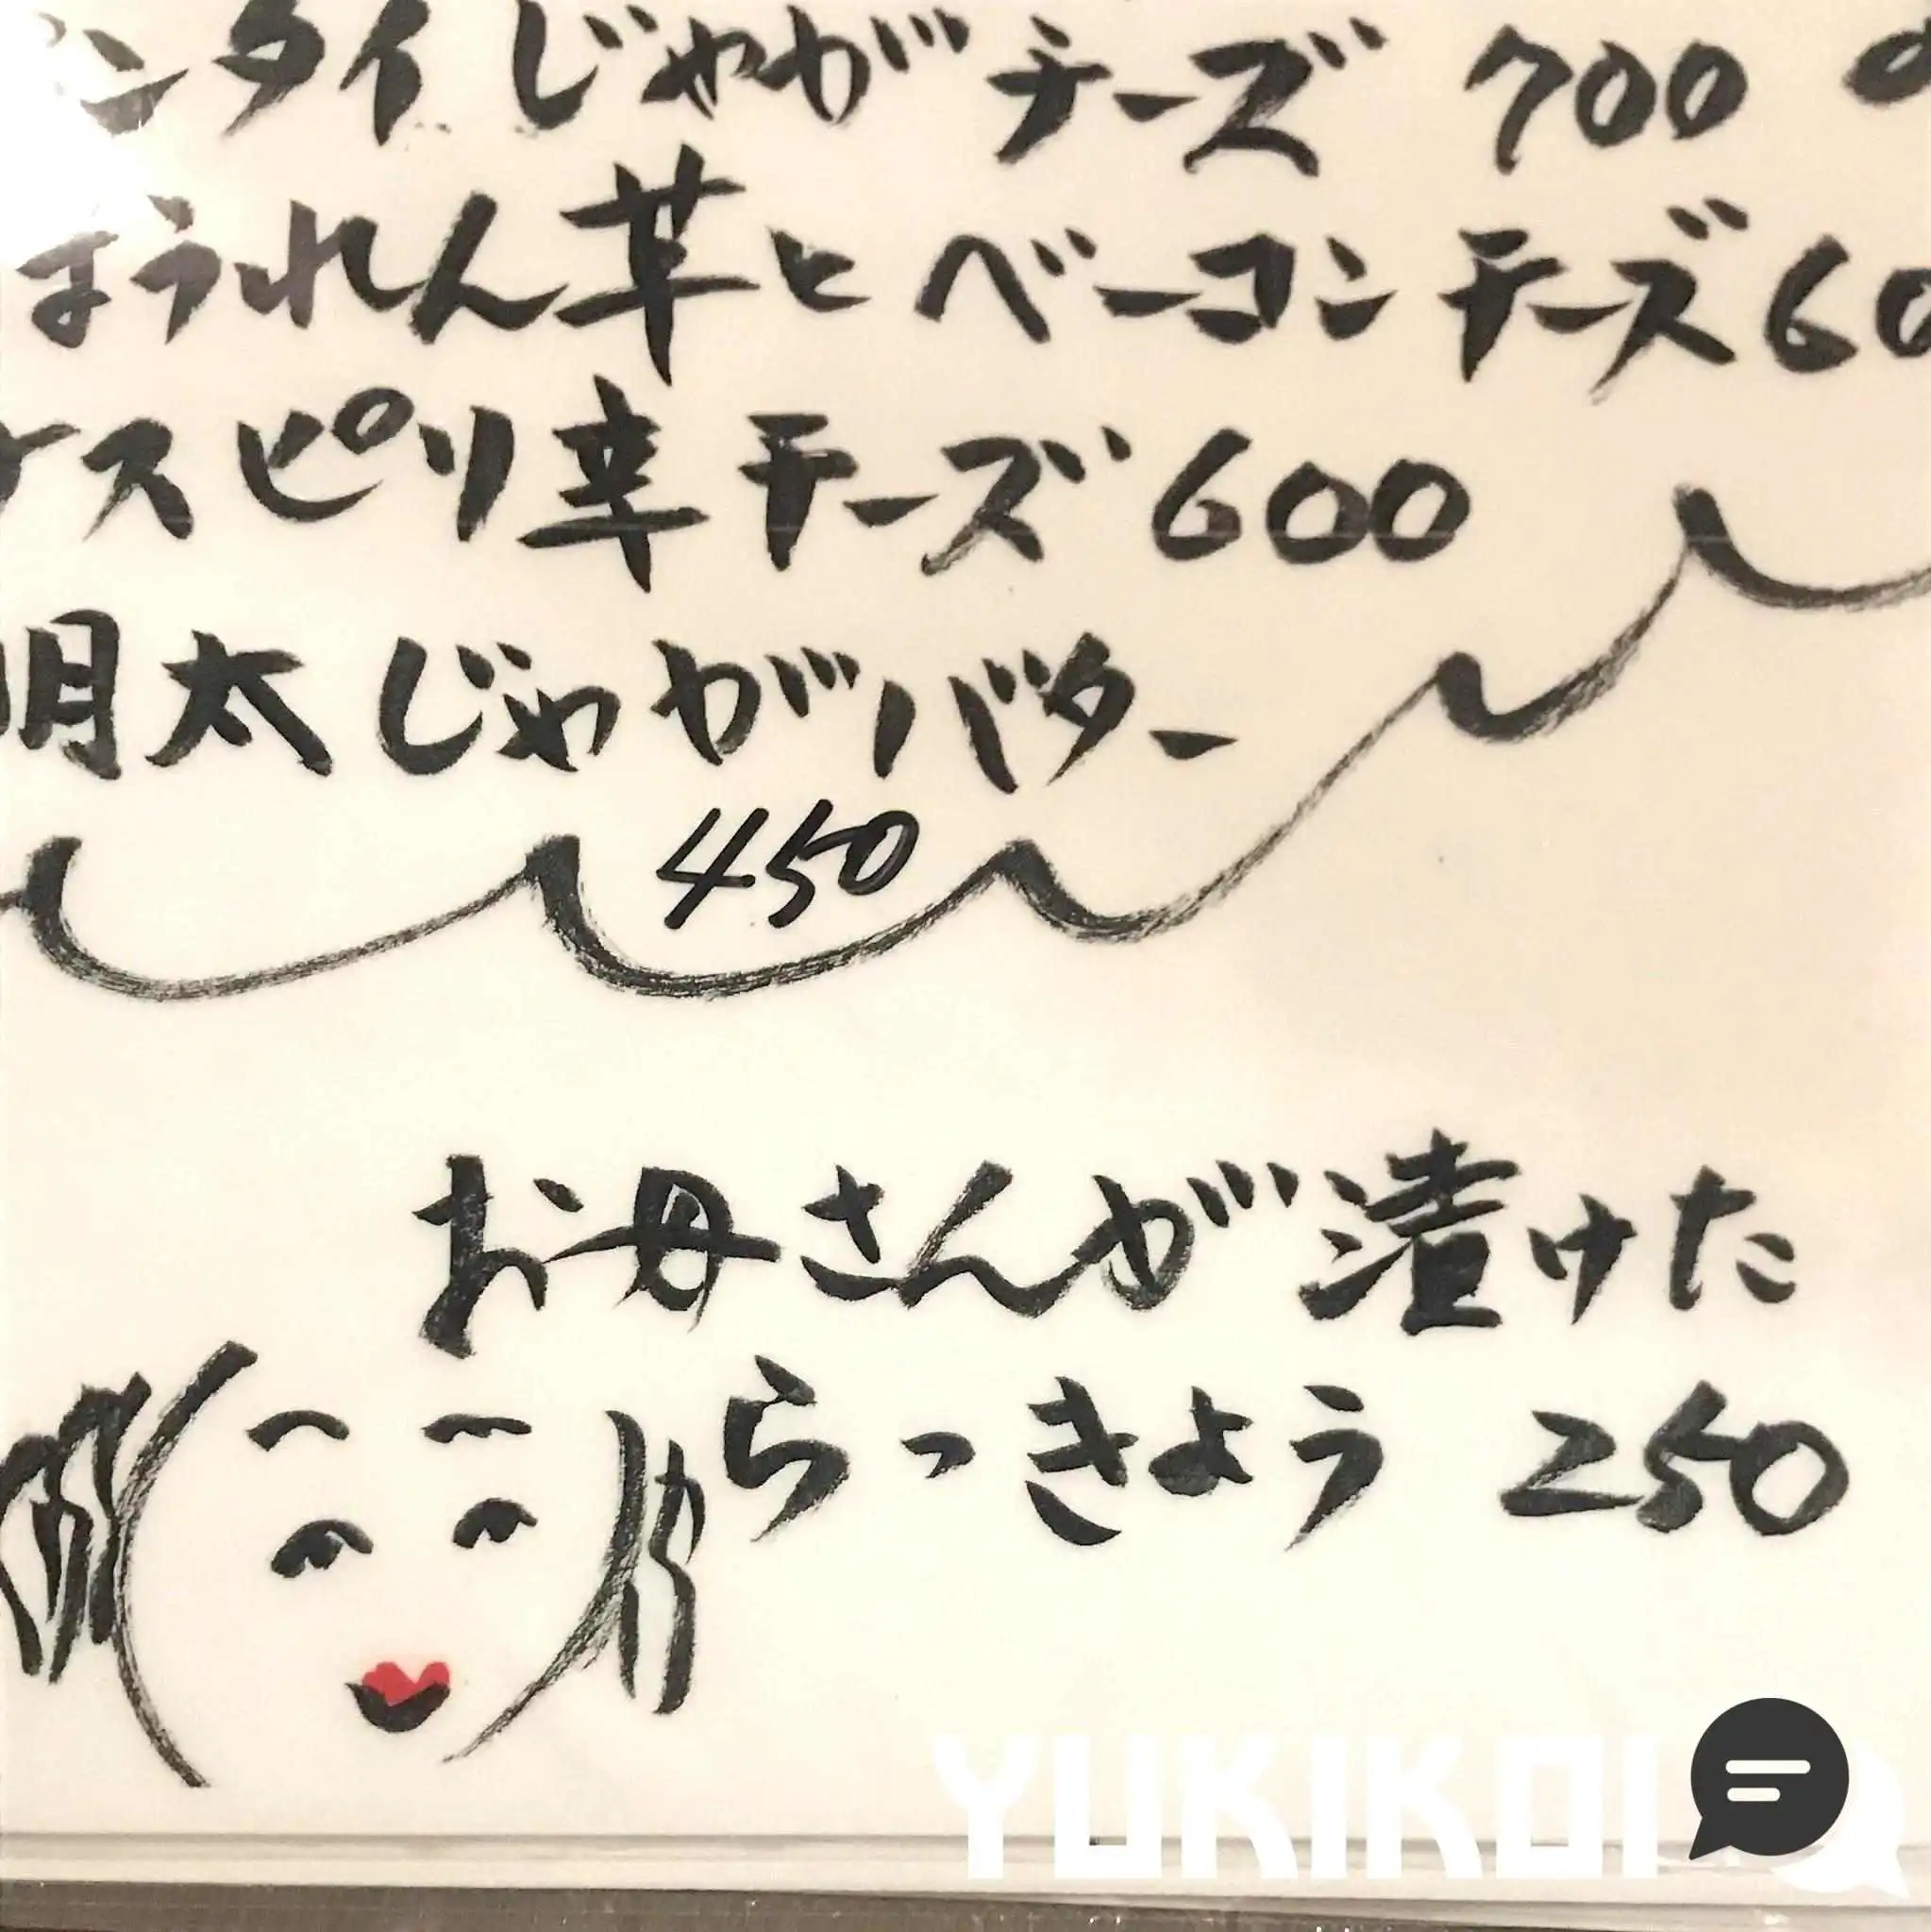 ンタイじゃがチーズ 700
ほうれん草とベーコンチーズ 60
ケスピリ辛チーズ 600
明太じゃがバター
450
お母さんが漬けた
らっきょう 250
YUKIKOI